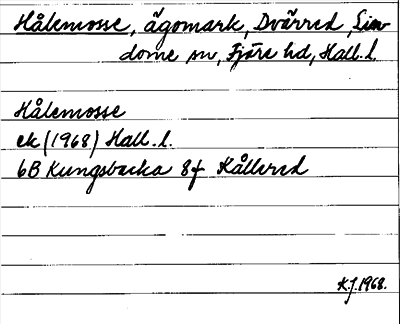 Hålemosse, ägomark, Dvärred, Lin-
dome sn, Fjäre hd, Hall. l.
Hålemosse
ek (1968) Hall. l.
6B Kungsbacka 8f Kållered
K.J. 1968.